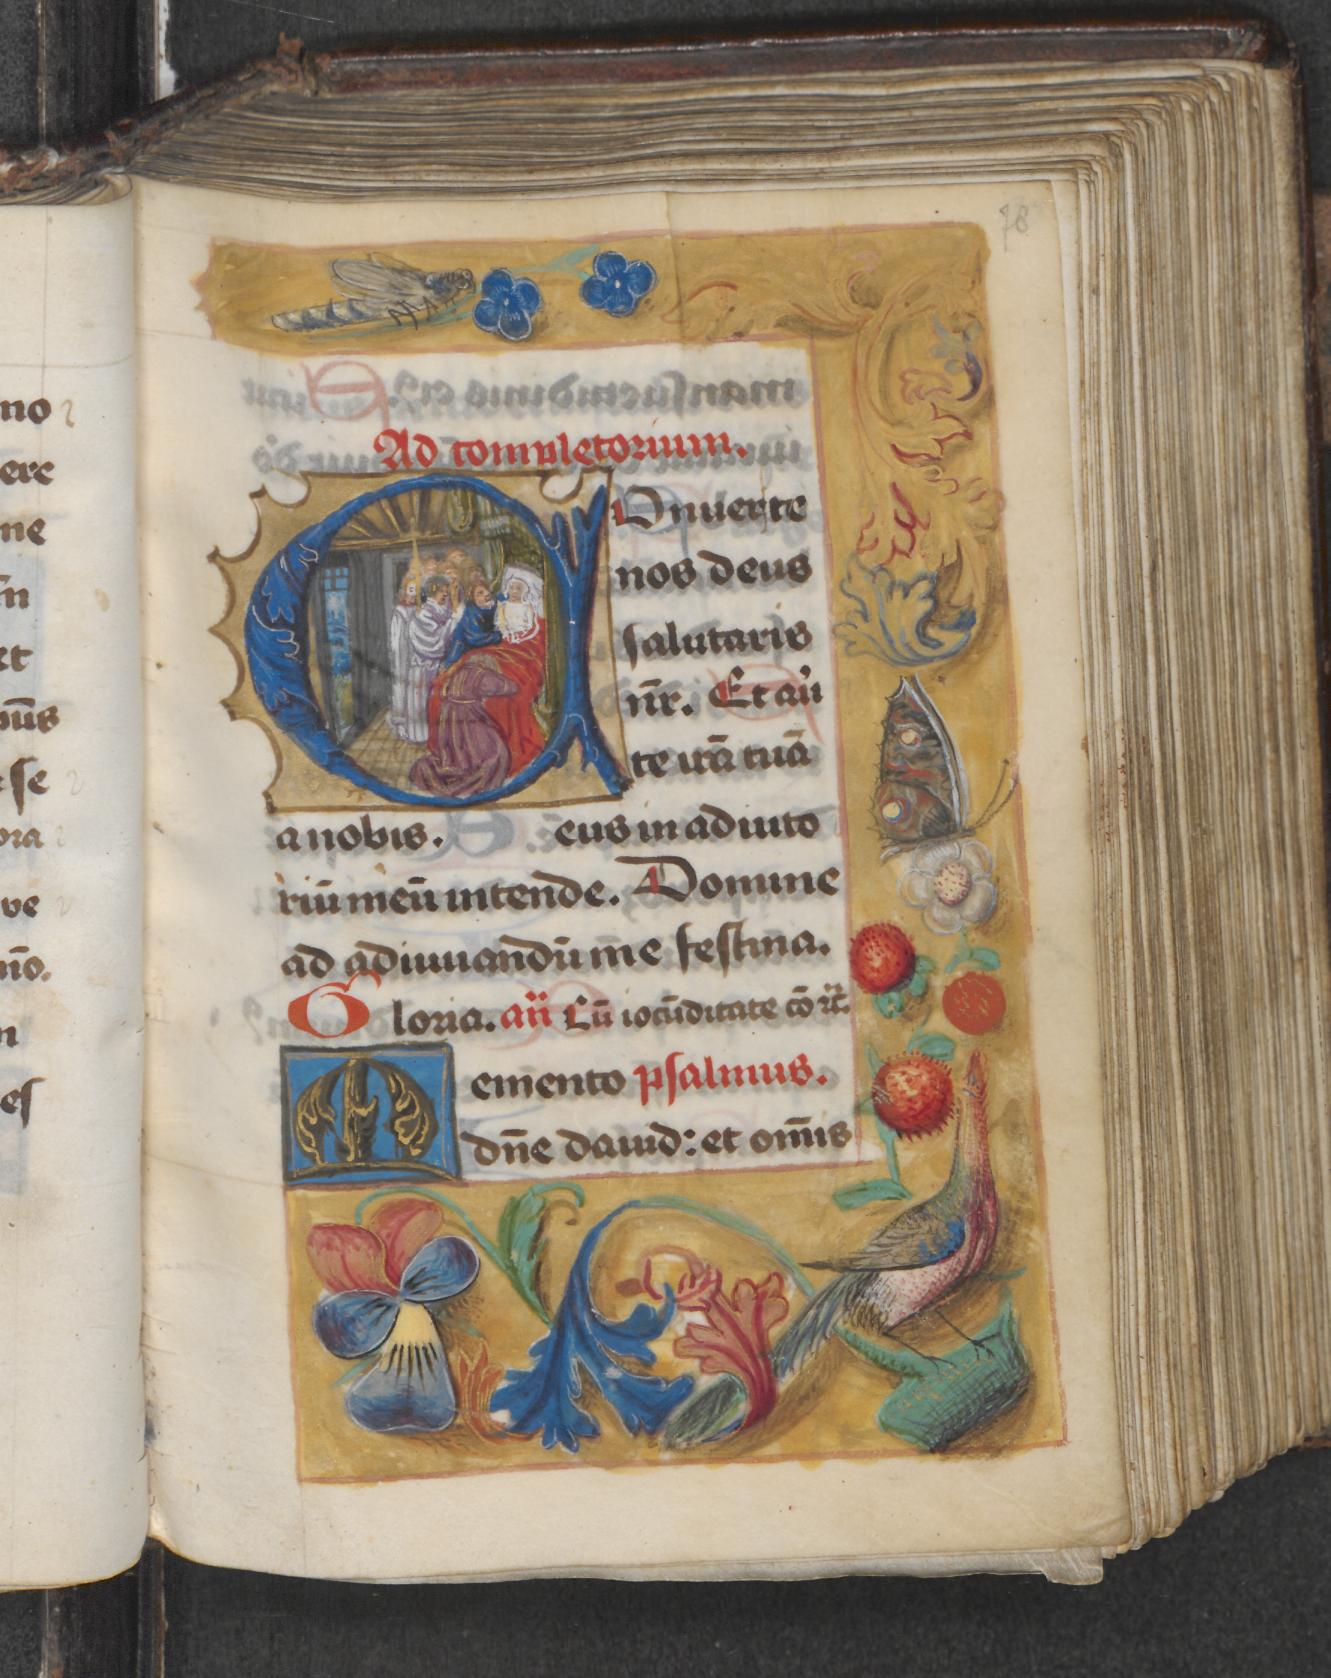 78
no
ere
me
in
et
pūs
e se
ora
ve
m̄o.
m
es
Ad completorium.
Onuerte
nos deus
salutaris
nr̄. Et au
te irā tuā
a nobis. eus in adiuto
riū meū intende. Domine
ad adiuuandū me festina.
Gloria. an̄ Cū iocūditate cō
Memento psalmus.
dn̄e dauid: et om̄is